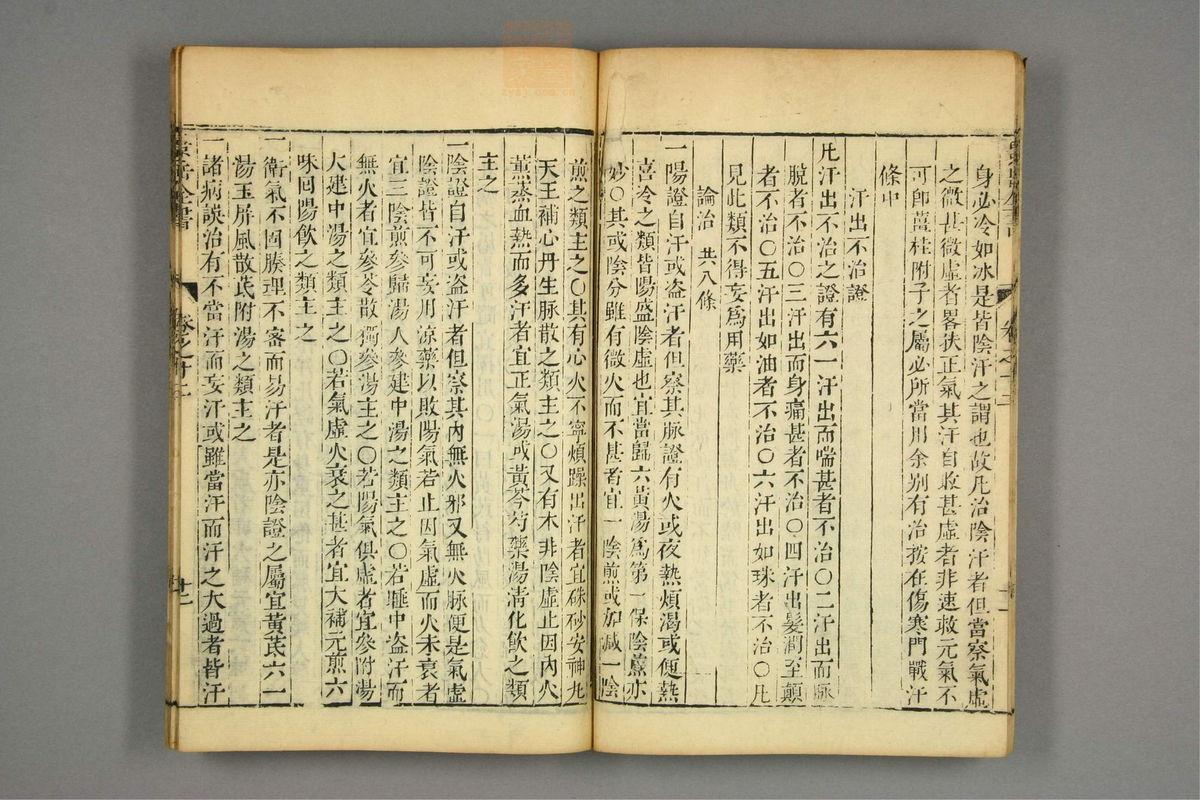 身必冷如冰是皆陰汗之謂也故凡治陰汗者但當察氣虛
之微甚微虛者畧扶正氣其汗自收甚虛者非速救元氣不
可卽薑桂附子之屬必所當用余别有治按在傷寒門戰汗
條中
汗出不治證
凡汗出不治之證有六一汗出而喘甚者不治〇二汗出而脉
脫者不治〇三汗出而身痛甚者不治〇四汗出髮潤至顛
者不治〇五汗出如油者不治〇六汗出如珠者不治〇凡
見此類不得妄爲用藥
論治 共八條
一陽證自汗或盗汗者但察其脉證有火或夜熱煩渴或便熱
喜冷之類皆陽盛陰虛也宜當歸六黄湯爲第一保陰煎亦
妙〇其或陰分雖有微火而不甚者宜一陰煎或加减一陰
煎之類主之〇其有心火不寧煩躁出汗者宜硃砂安神丸
天王補心丹生脉散之類主之〇又有本非陰虛止因內火
薰蒸血熱而多汗者宜正氣湯或黄芩芍藥湯清化飲之類
主之
一陰證自汗或盗汗者但察其內無火邪又無火脉便是氣虛
陰證皆不可妄用凉藥以敗陽氣若止因氣虛而火未衰者
宜三陰煎參歸湯人參建中湯之類主之〇若睡中盗汗而
無火者宜參苓散獨參湯主之〇若陽氣俱虛者宜參附湯
大建中湯之類主之〇若氣虛火衰之甚者宜大補元煎六
味回陽飲之類主之
一衛氣不固腠理不密而易汗者是亦陰證之屬宜黄芪六一
湯玉屏風散芪附湯之類主之
一諸病誤治有不當汗而妄汗或雖當汗而汗之大過者皆汗
景岳全書
卷之十二
廿二